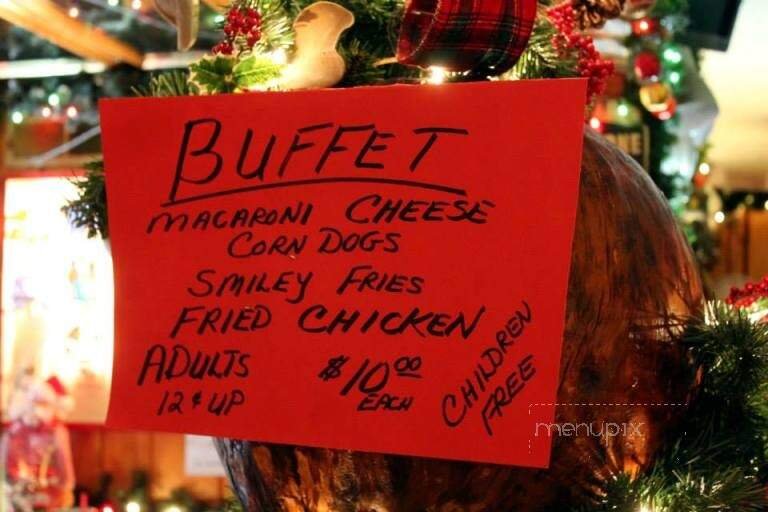 BUFFET
MACARONI CHEESE
CORN DOGS
SMILEY FRIES
FRIED CHICKEN
ADULTS
12 & UP
$10.00
EACH
CHILDREN
FREE
menupix